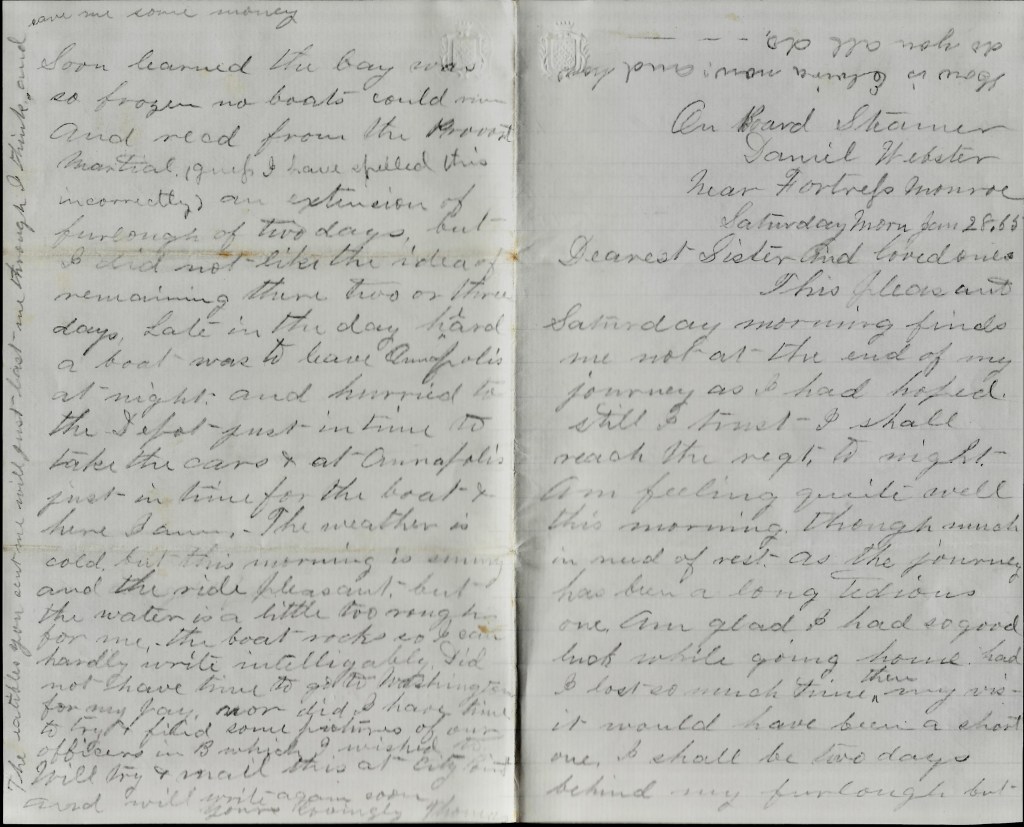 On Board Steamer
Daniel Webster
Near Fortress Monroe
Saturday Morn Jan 28, 65
Dearest Sister and loved ones
This pleasant
Saturday morning finds
me not at the end of my
journey as I had hoped
still I trust I shall
reach the regt. to night.
Am feeling quite well
this morning. though much
in need of rest. as the journey
has been a long tedious
one. Am glad I had so good
luck while going home. had
I lost so much time then my vis-
it would have been a short
one. I shall be two days
behind my furlough but
Soon learned the bay was
so frozen no boats could run
and recd from the Provost
Martial. (guess I have spelled this
incorrectly) an extension of
furlough of two days, but
I did not like the idea of
remaining there two or three
days, Late in the day hard
a boat was to leave Annapolis
at night. and hurried to
the Depot just in time to
take the cars & at Annapolis
just in time for the boat &
here I am. - The weather is
cold. but this morning is sunny
and the ride pleasant. but
the water is a little too rough
for me, the boat rocks so I can
hardly write intelligably. Did
not have time to go to Washington
for my pay, nor did I have time
to try & find some pictures of our
officers in B which I wished to
Will try & mail this at City Point
and will write again soon
Yours lovingly Thomas
The eatables you sent me will just last me through I think, and
save me some money
How is Elvira now: and how
do you all do.